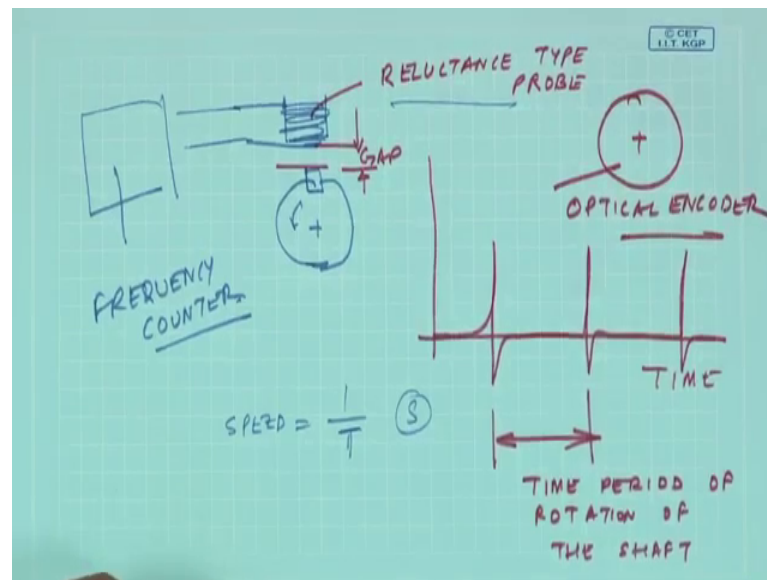 © CET
I.I.T. KGP
RELUCTANCE TYPE
PROBE
GAP
OPTICAL ENCODER
FREQUENCY
COUNTER
TIME
SPEED = 1/T (S)
TIME PERIOD OF
ROTATION OF
THE SHAFT